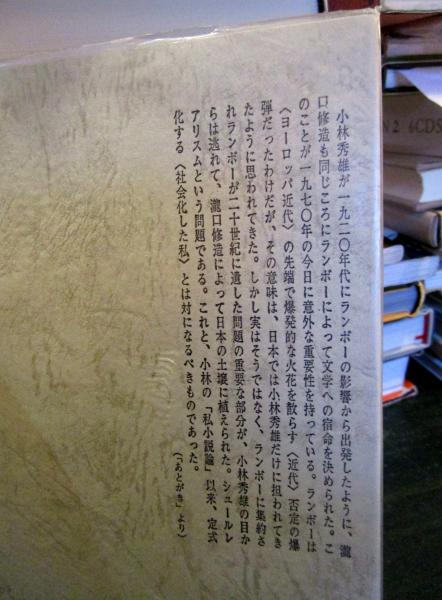 小林秀雄が一九二〇年代にランボーの影響から出発したように、瀧
口修造も同じころにランボーによって文学への宿命を決められた。こ
のことが一九七〇年の今日に意外な重要性を持っている。ランボーは
〈ヨーロッパ近代〉の先端で爆発的な火花を散らす〈近代〉否定の爆
弾だったわけだが、その意味は、日本では小林秀雄だけに担われてき
たように思われてきた。しかし実はそうではなく、ランボーに集約さ
れランボーが二十世紀に遺した問題の重要な部分が、小林秀雄の目か
らは逃れて、瀧口修造によって日本の土壌に植えられた。シュールレ
アリスムという問題である。これと、小林の「私小説論」以来、定式
化する〈社会化した私〉とは対になるべきものであった。
（「あとがき」より）
N2 6CDS